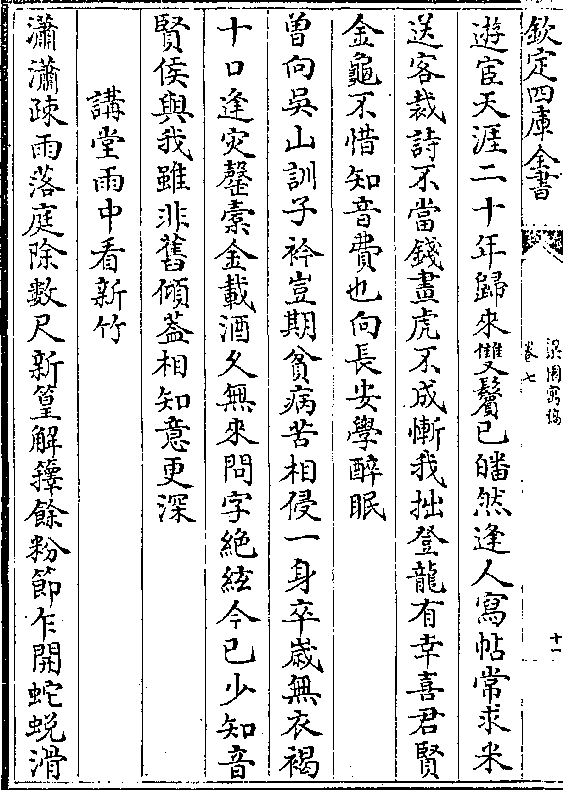 欽定四庫全書
卷七
十一
遊宦天涯二十年歸來雙鬢已皤然逢人寫帖常求米
送客裁詩不當錢畫虎不成慚我拙登龍有幸喜君賢
金龜不惜知音費也向長安學醉眠
曾向吳山訓子衿豈期貧病苦相侵一身卒歲無衣褐
十口逢災罄槖金載酒久無來問字絶絃今已少知音
賢侯與我雖非舊傾葢相知意更深
講堂雨中看新竹
瀟瀟疎雨落庭除數尺新篁解籜餘粉節乍開蛇蛻滑